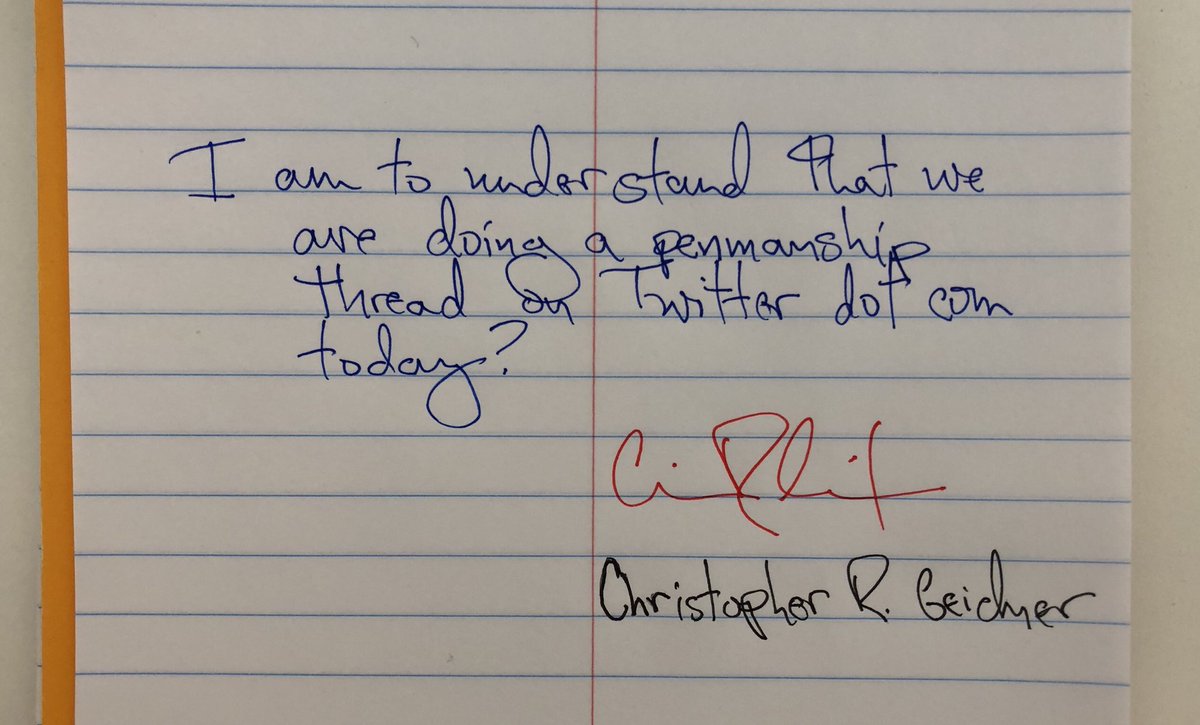 I am to understand that we
are doing a penmanship
thread on Twitter dot com
today?
Christopher R. Geidner